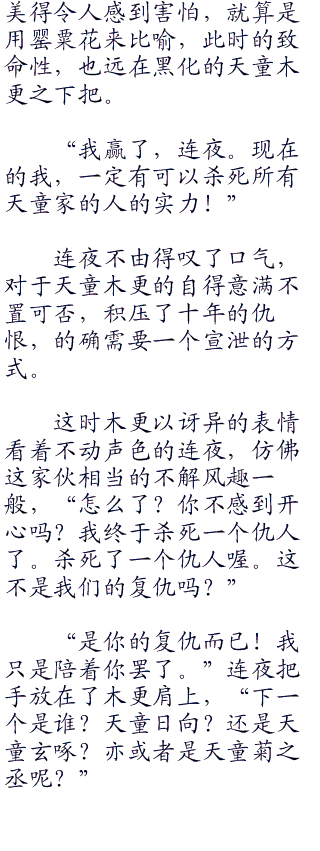 美得令人感到害怕，就算是
用罂粟花来比喻，此时的致
命性，也远在黑化的天童木
更之下把。
“我赢了，连夜。现在
的我，一定有可以杀死所有
天童家的人的实力！”
连夜不由得叹了口气，
对于天童木更的自得意满不
置可否，积压了十年的仇
恨，的确需要一个宣泄的方
式。
这时木更以讶异的表情
看着不动声色的连夜，仿佛
这家伙相当的不解风趣一
般，“怎么了？你不感到开
心吗？我终于杀死一个仇人
了。杀死了一个仇人喔。这
不是我们的复仇吗？”
“是你的复仇而已！我
只是陪着你罢了。”连夜把
手放在了木更肩上，“下一
个是谁？天童日向？还是天
童玄啄？亦或者是天童菊之
丞呢？”